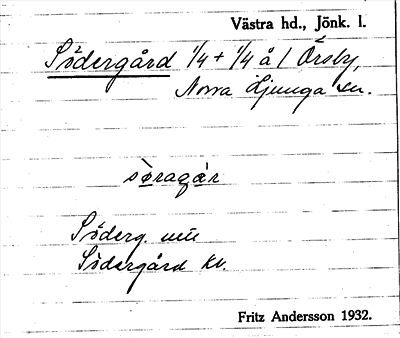 Västra hd., Jönk. l.
Södergård 1/4 + 1/4 å l Örsby,
Norra Ljunga sn.
sǿragǽr
Söderg. mtl
Södergård kv.
Fritz Andersson 1932.